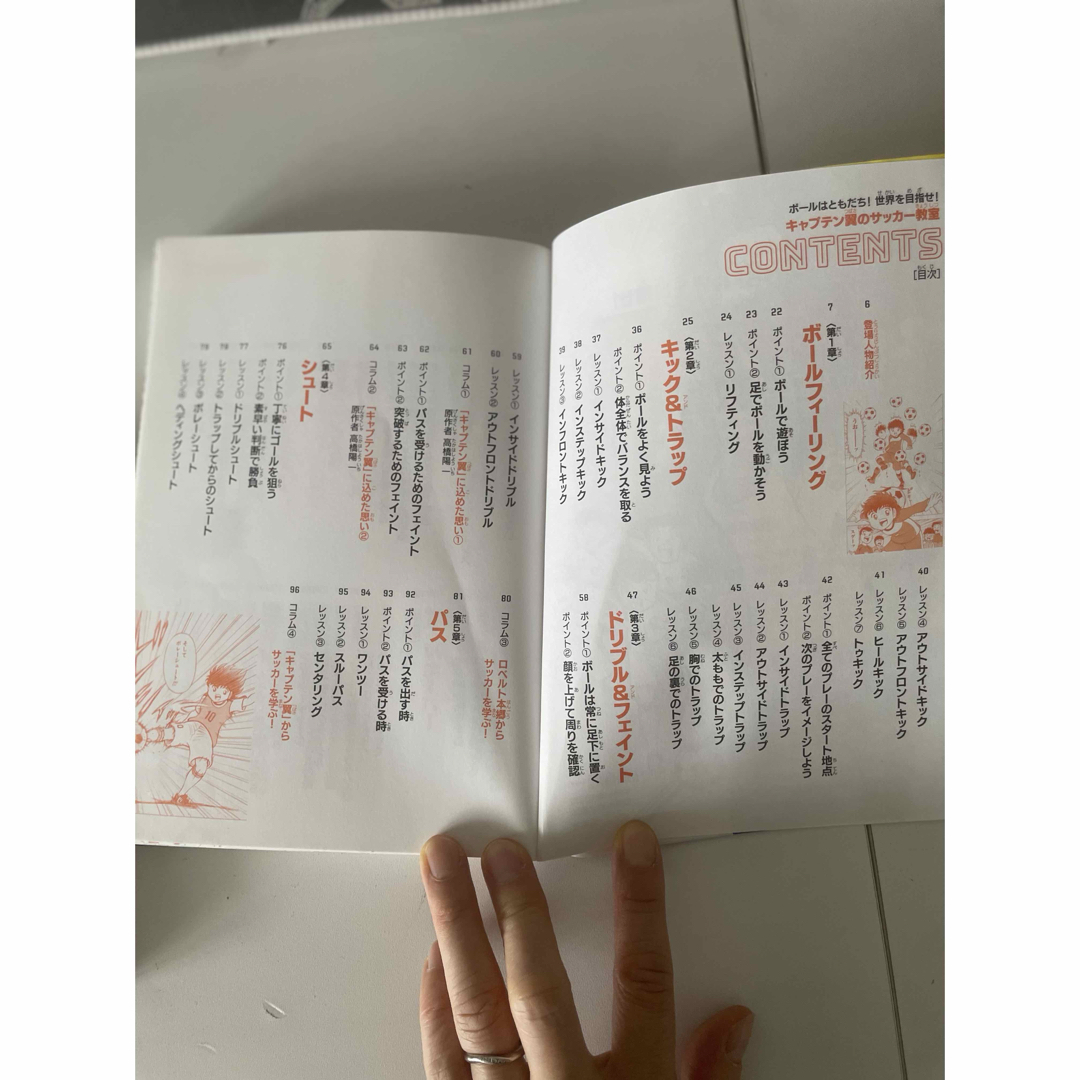 ボールはともだち! 世界を目指せ!
キャプテン翼のサッカー教室
CONTENTS
[目次]
6 登場人物紹介
7 〈第1章〉
ボールフィーリング
22 ポイント① ボールで遊ぼう
23 ポイント② 足でボールを動かそう
24 レッスン① リフティング
25 〈第2章〉
キック&トラップ
36 ポイント① ボールをよく見よう
ポイント② 体全体でバランスを取る
37 レッスン① インサイドキック
38 レッスン② インステップキック
39 レッスン③ インフロントキック
40 レッスン④ アウトサイドキック
レッスン⑤ アウトフロントキック
41 レッスン⑥ ヒールキック
レッスン⑦ トゥキック
42 ポイント① 全てのプレーのスタート地点
ポイント② 次のプレーをイメージしよう
43 レッスン① インサイドトラップ
44 レッスン② アウトサイドトラップ
45 レッスン③ インステップトラップ
レッスン④ 太ももでのトラップ
46 レッスン⑤ 胸でのトラップ
レッスン⑥ 足の裏でのトラップ
47 〈第3章〉
ドリブル&フェイント
58 ポイント① ボールは常に足下に置く
ポイント② 顔を上げて周りを確認
59 レッスン① インサイドドリブル
60 レッスン② アウトフロントドリブル
61 コラム① 「キャプテン翼」に込めた思い①
原作者 高橋陽一
62 ポイント① パスを受けるためのフェイント
63 ポイント② 突破するためのフェイント
64 コラム② 「キャプテン翼」に込めた思い②
原作者 高橋陽一
65 〈第4章〉
シュート
76 ポイント① 丁寧にゴールを狙う
ポイント② 素早い判断で勝負
77 レッスン① ドリブルシュート
78 レッスン② トラップしてからのシュート
レッスン③ ボレーシュート
レッスン④ ヘディングシュート
80 コラム③ ロベルト本郷から
サッカーを学ぶ!
81 〈第5章〉
パス
92 ポイント① パスを出す時
93 ポイント② パスを受ける時
94 レッスン① ワンツー
95 レッスン② スルーパス
レッスン③ センタリング
96 コラム④ 「キャプテン翼」から
サッカーを学ぶ!
10